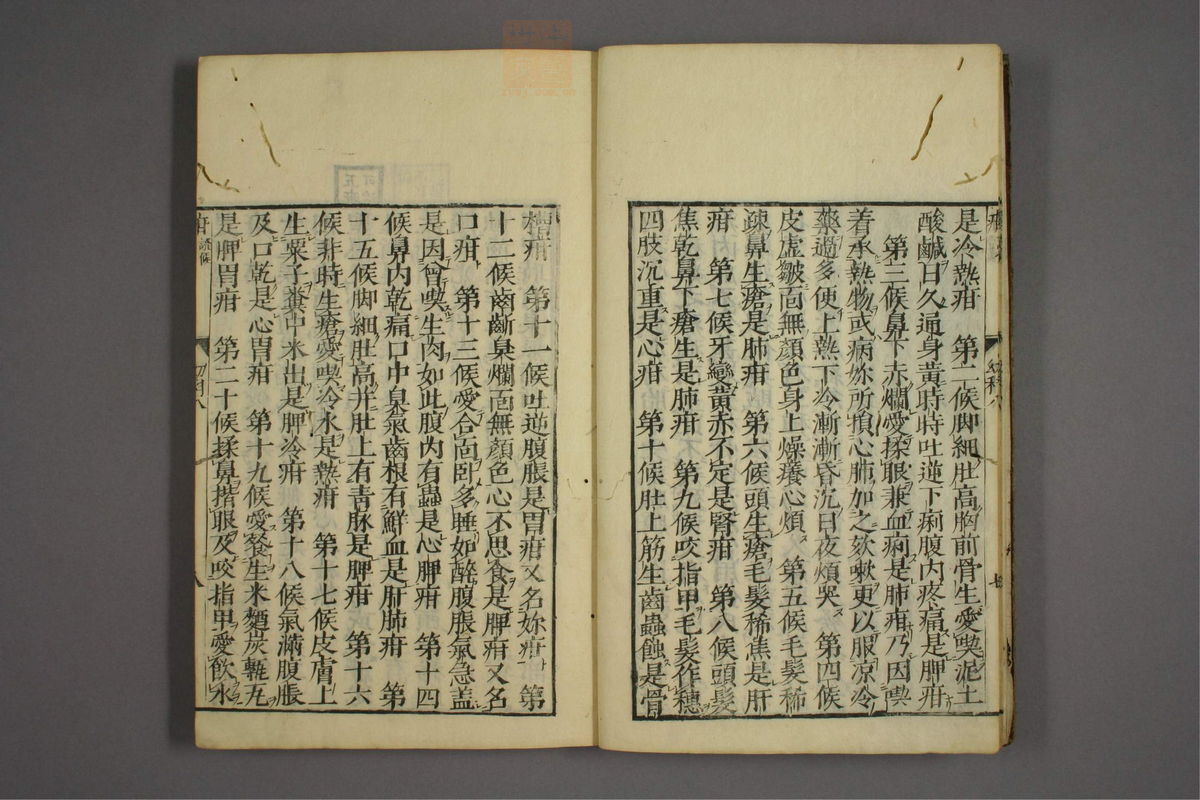 是冷熱疳　第二候脚細肚高胸前骨生愛喫泥土
酸鹹日久通身黄時時吐逆下痢腹內疼痛是脾疳
第三候鼻下赤爛愛揉眼兼血痢是肺疳乃因喫
着承熱物或病妳所損心肺加之欬嗽更以服凉冷
藥過多便上熱下冷漸漸昏沉日夜煩哭　第四候
皮虚皺面無顏色身上燥癢心煩　第五候毛髮稀
疎鼻生瘡是肺疳　第六候頭生瘡毛髮稀焦是肝
疳　第七候牙變黄赤不定是腎疳　第八候頭髮
焦乾鼻下瘡生是肺疳　第九候咬指甲毛髮作穗
四肢沉重是心疳　第十候肚上筋生齒蟲蝕是骨
槽疳　第十一候吐逆腹脹是胃疳又名妳疳　第
十二候齒齗臭爛面無顏色心不思食是脾疳又名
口疳　第十三候愛合面卧多睡如醉腹脹氣急盖
是因曾喫生肉如此腹內有蟲是心脾疳　第十四
候鼻內乾痛口中臭氣齒根有鮮血是肝肺疳　第
十五候脚細肚高并肚上有青脉是脾疳　第十六
候非時生瘡愛喫冷水是熱疳　第十七候皮膚上
生粟子糞中米出是脾冷疳　第十八候氣滿腹脹
及口乾是心胃疳　第十九候愛餐生米麵炭甎瓦
是脾胃疳　第二十候揉鼻揩眼及咬指甲愛飲水